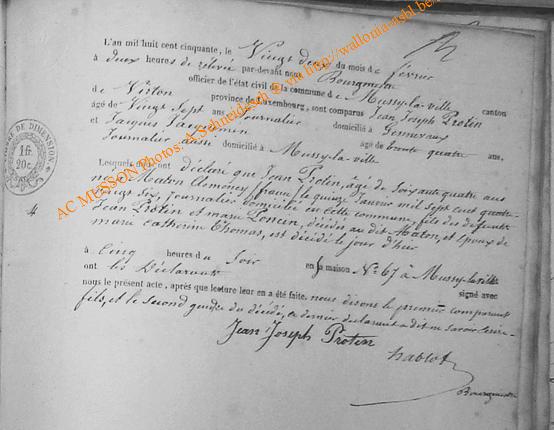 L'an mil huit cent cinquante, le Vingt deux du mois de février
à deux heures de relevée par-devant nous Bourgmestre
officier de l'état civil de la commune de Mussy-la-ville canton
de Virton province de Luxembourg, sont comparus Jean Joseph Protin
âgé de Vingt Sept ans Journalier domicilié à Gennevaux
et Jacques âgé de trente quatre ans,
Journalier aussi domicilié à Mussy-la-ville
Lesquels ont déclaré que Jean Protin, âgé de Soixante quatre ans
né à Maton france, le quinze Janvier mil sept cent quatre-
vingt Six, journalier domicilié en cette commune, fils des défunts
Jean Protin et marie Poncin, décédés au dit Maton, et Epoux de
marie Catherine Thomas, est décédé le jour d'hier
à Cinq heures du Soir en sa maison N° 67 à Mussy-la-ville
ont les Déclarants signé avec
nous le présent acte, après que lecture leur en a été faite. nous disons le premier comparant
fils, et le second du décédé, ce dernier déclarant a dit ne savoir écrire
Jean Joseph Protin
hablot
Bourgmestre
DE DIMENSION
16
20c
AC MUSSON Photos: A Schneidesch © via http://wallonia-asbl.be/